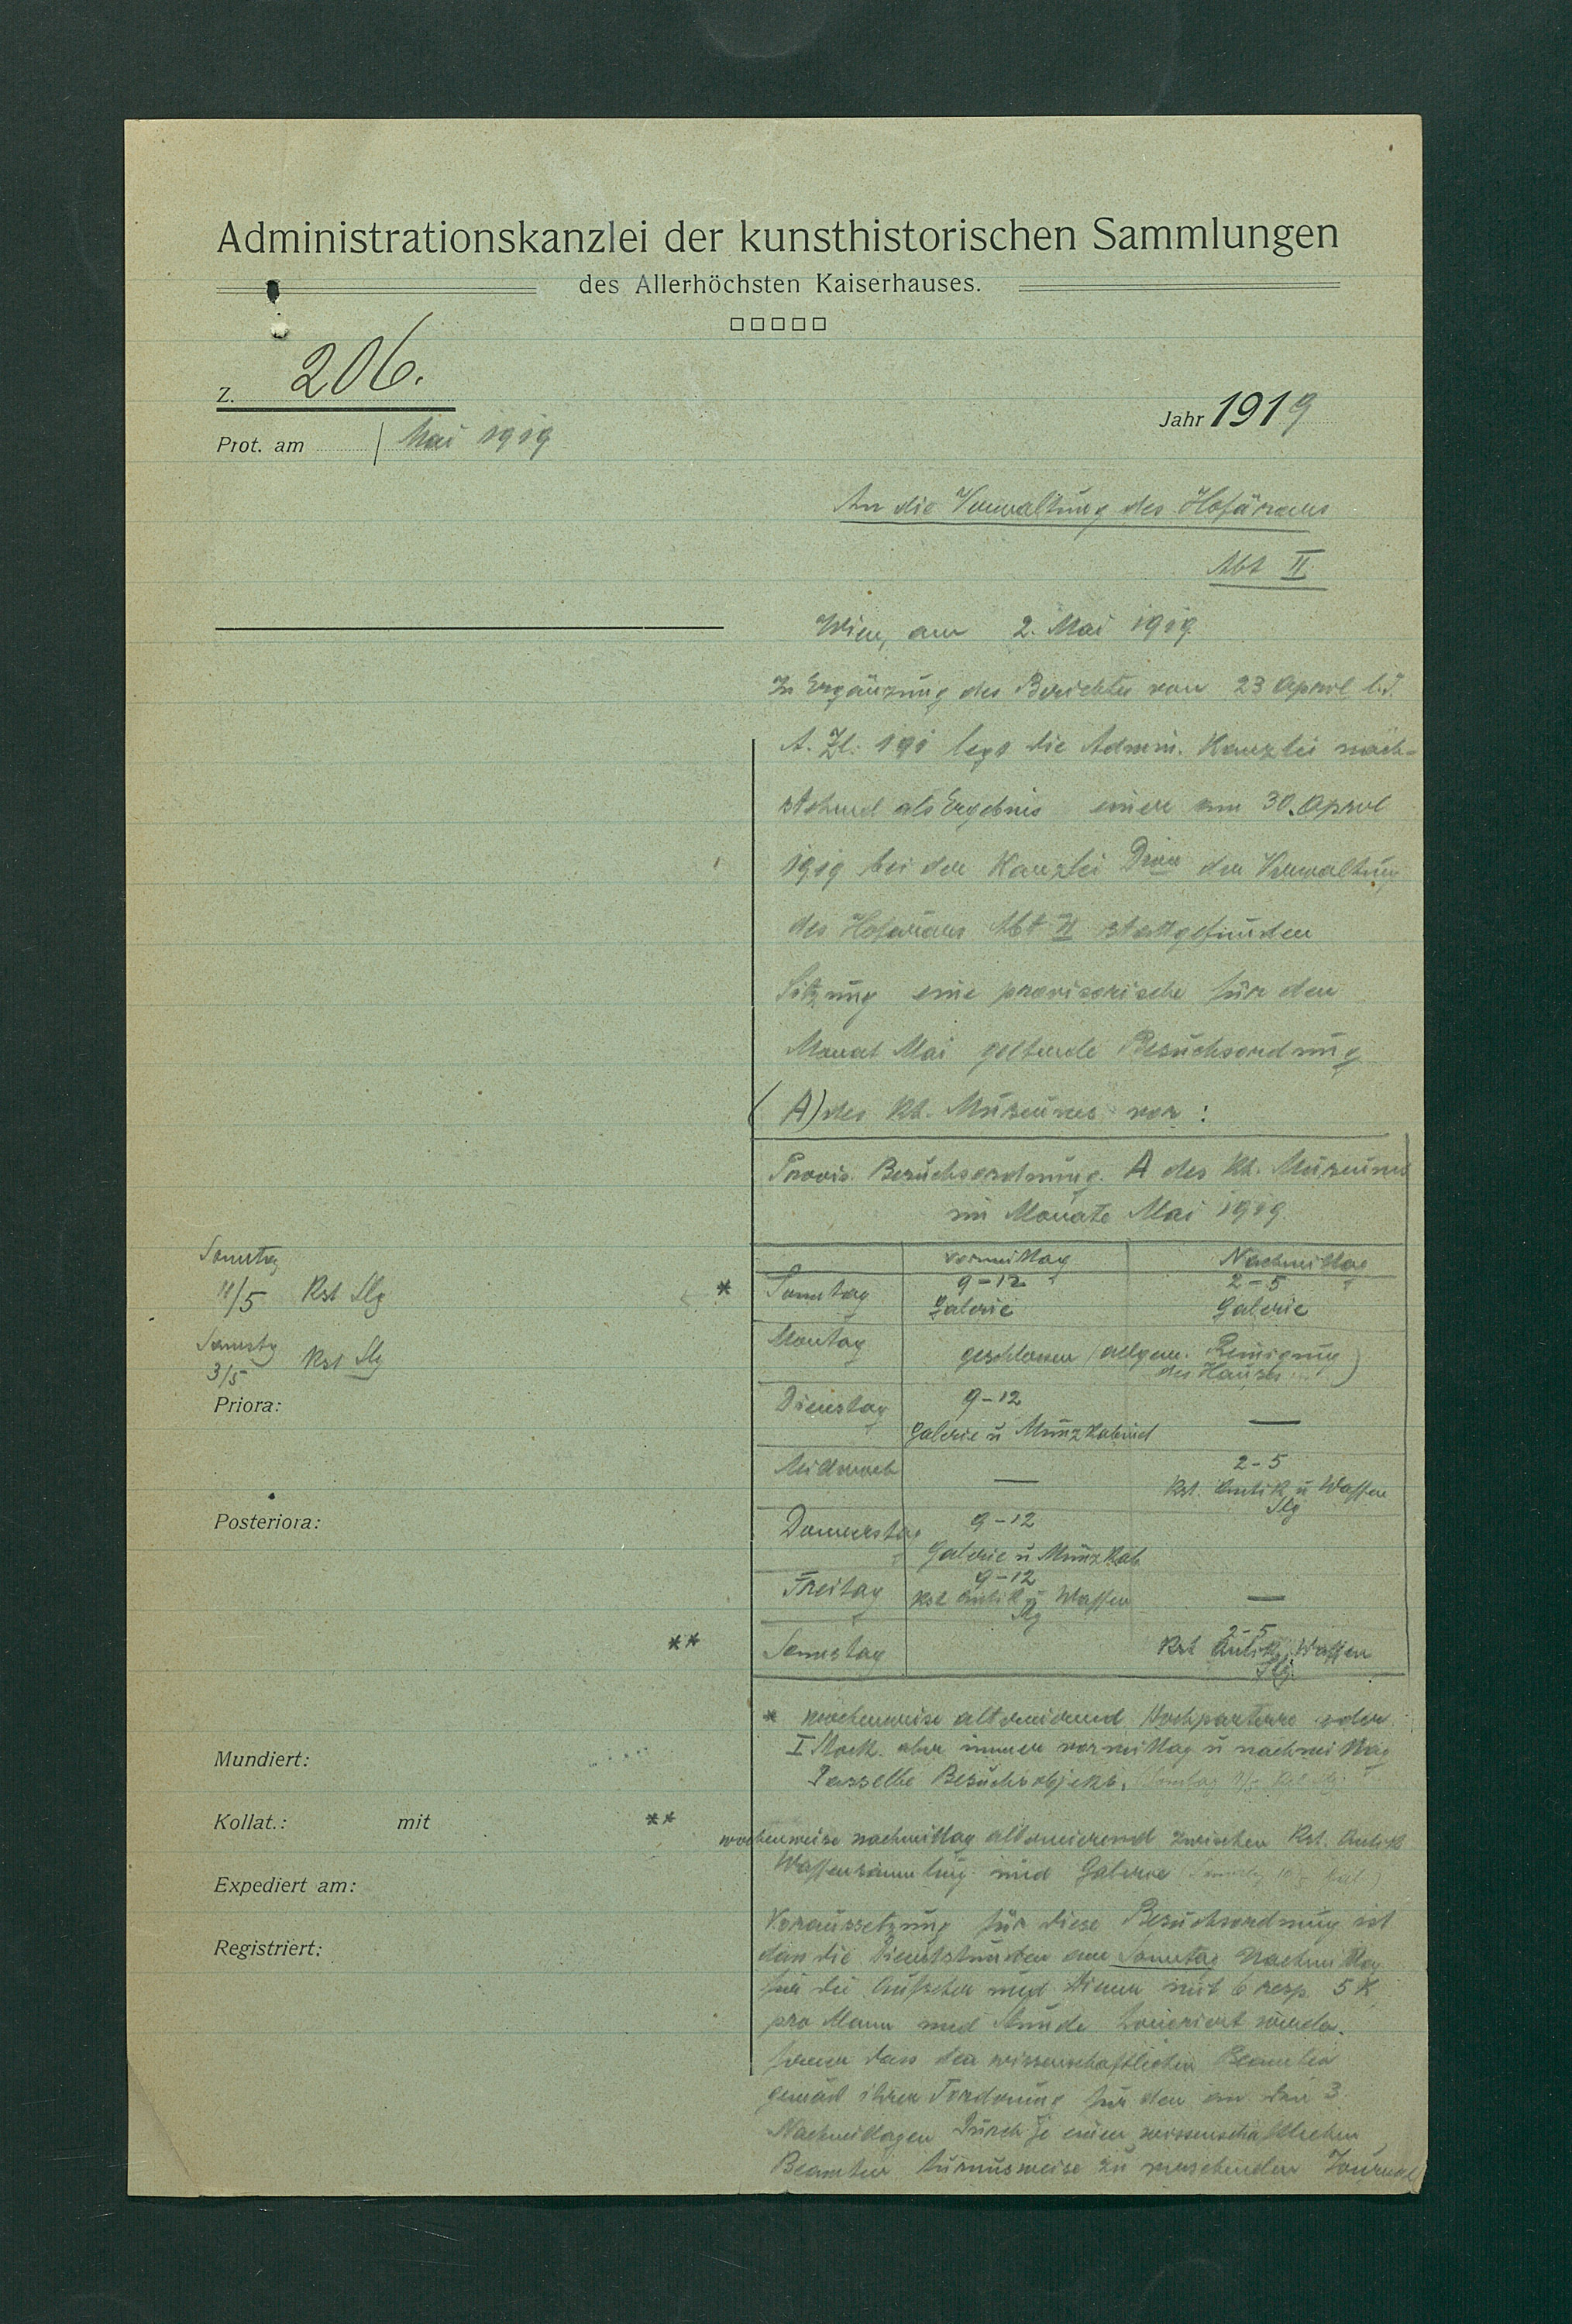 Administrationskanzlei der kunsthistorischen Sammlungen
des Allerhöchsten Kaiserhauses.
Z. 206.
Jahr 1919
Prot. am / Mai 1919
An die Verwaltung des Hofärars
Abt II
Wien, am 2. Mai 1919.
In Ergänzung des Berichtes vom 23 April l. J.
A. Zl. 191 legt die Admin. Kanzlei nach-
stehend als Ergebnis einer am 30. April
1919 bei der Kanzlei Dion der Verwaltung
des Hofärars Abt II stattgefunden
Sitzung eine provisorische für den
Monat Mai geltende Besuchsordnung
(A) des kh. Museums vor:
Provis. Besuchsordnung. A des kh. Museums
im Monate Mai 1919.
vormittag Nachmittag
Sonntag
11/5 Kst Slg
* Sonntag 9-12 Galerie 2-5 Galerie
Samstg
3/5 Kst Slg
Montag geschlossen (allgem. Reinigung
des Hauses)
Priora:
Dienstag 9-12
Galerie u Münzkabinet —
Mittwoch — 2-5
Kst. Antik u Waffen
Slg
Posteriora:
Donnerstag 9-12
Galerie u Münzkab
Freitag 9-12
Kst Antik u Waffen —
Slg
** Samstag 2-5
Kst Antik, Waffen
Slg.
* wochenweise alternierend Hochparterre oder
I Stock. aber immer vormittag u nachmittag
Dasselbe Besuchsobjekt.
Mundiert:
Kollat.: mit
** wochenweise nachmittag alternierend zwischen Kst. Antik
Waffensammlung und Galerie
Expediert am:
Voraussetzung für diese Besuchsordnung ist
dass die Dienststunden am Sonntag Nachmittag
Registriert:
für die Aufseher und Diener mit 6 resp. 5 K
pro Mann und Stunde honoriert werden.
ferner dass den wissenschaftlichen Beamten
gemäß ihrer Forderung für den an den 3
Nachmittagen Durch je einen wissenschaftlichen
Beamten turnusweise zu versehenden Journal